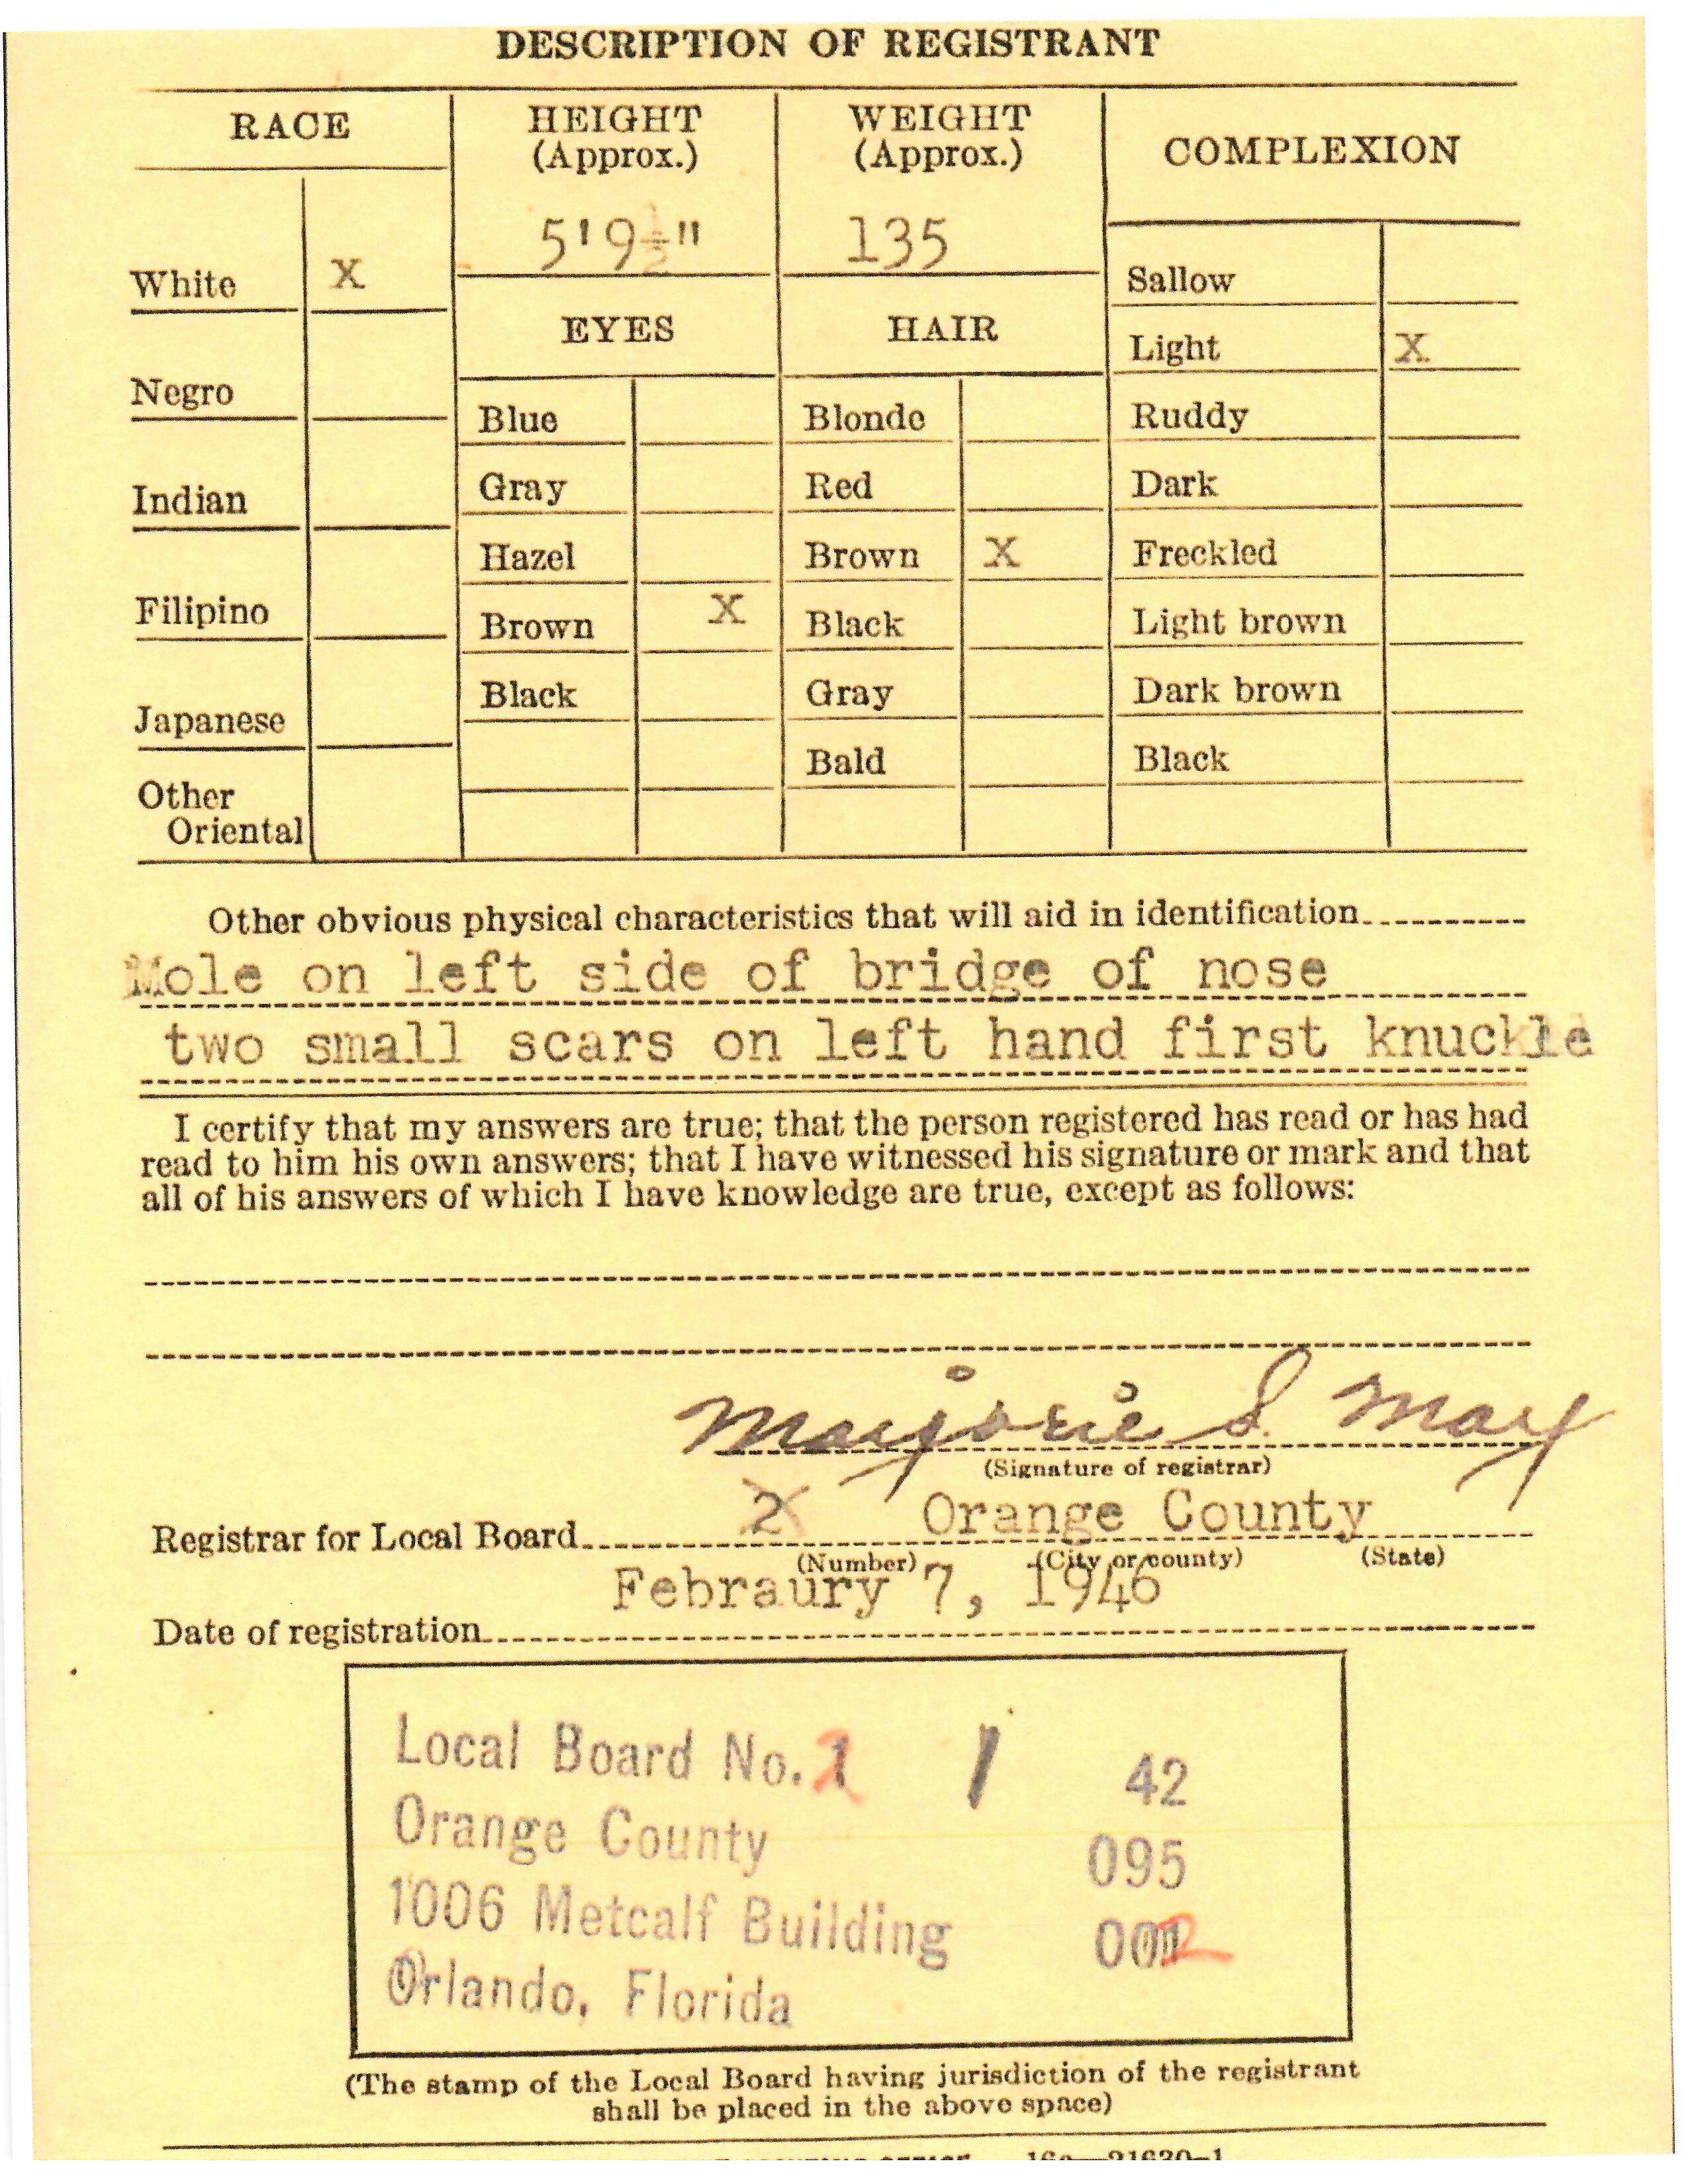 DESCRIPTION OF REGISTRANT
RACE
HEIGHT
(Approx.)
WEIGHT
(Approx.)
COMPLEXION
5'9½"
135
White X
Negro
Indian
Filipino
Japanese
Other
Oriental
EYES
Blue
Gray
Hazel
Brown X
Black
HAIR
Blonde
Red
Brown X
Black
Gray
Bald
Sallow
Light X
Ruddy
Dark
Freckled
Light brown
Dark brown
Black
Other obvious physical characteristics that will aid in identification
Mole on left side of bridge of nose
two small scars on left hand first knuckle
I certify that my answers are true; that the person registered has read or has had
read to him his own answers; that I have witnessed his signature or mark and that
all of his answers of which I have knowledge are true, except as follows:
Marjorie S. May
(Signature of registrar)
Registrar for Local Board 2 Orange County
(Number) (City or county) (State)
Febraury 7, 1946
Date of registration
Local Board No. 2 1 42
Orange County 095
1006 Metcalf Building 002
Orlando, Florida
(The stamp of the Local Board having jurisdiction of the registrant
shall be placed in the above space)
16—21630-1